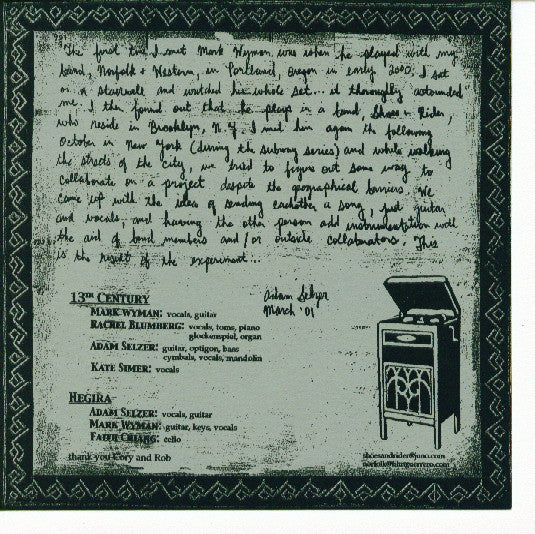 The first time I met Mark Wyman was when he played with my
band, Norfolk & Western, in Portland, Oregon in early 2000. I sat
on a stairwell and watched his whole set... it thoroughly astounded
me. I then found out that he plays in a band, Shoes n Rider,
who reside in Brooklyn, N.Y. I met him again the following
October in New York (during the subway series) and while walking
the streets of the city, we tried to figure out some way to
collaborate on a project despite the geographical barriers. We
came up with the idea of sending eachother a song, just guitar
and vocals, and having the other person add instrumentation with
the aid of band members and/or outside collaborators. This
is the result of the experiment...
Adam Selzer
March '01
13TH CENTURY
MARK WYMAN: vocals, guitar
RACHEL BLUMBERG: vocals, toms, piano
glockenspiel, organ
ADAM SELZER: guitar, optigon, bass
cymbals, vocals, mandolin
KATE SIMER: vocals
HEGIRA
ADAM SELZER: vocals, guitar
MARK WYMAN: guitar, keys, vocals
FAITH CHIANG: cello
thank you Cory and Rob
shoesandrider@juno.com
norfolk@hunguerrero.com